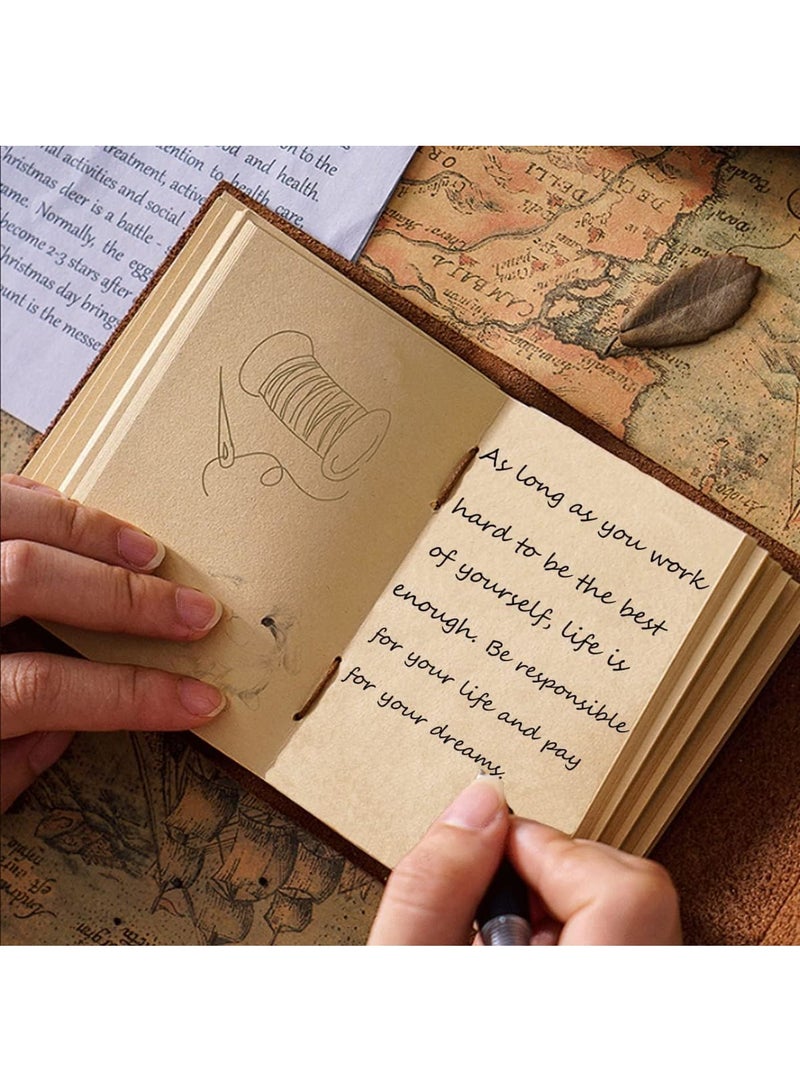 As long as you work
hard to be the best
of yourself, life is
enough. Be responsible
for your life and pay
for your dreams.
on to the
ention to health care
od and health.
reatment, active
al activities and social
hristmas deer is a battle -
ame. Normally, the egg
become 2-3 stars after
Christmas day bring
ount is the messe
DELLI
CAMBAIA